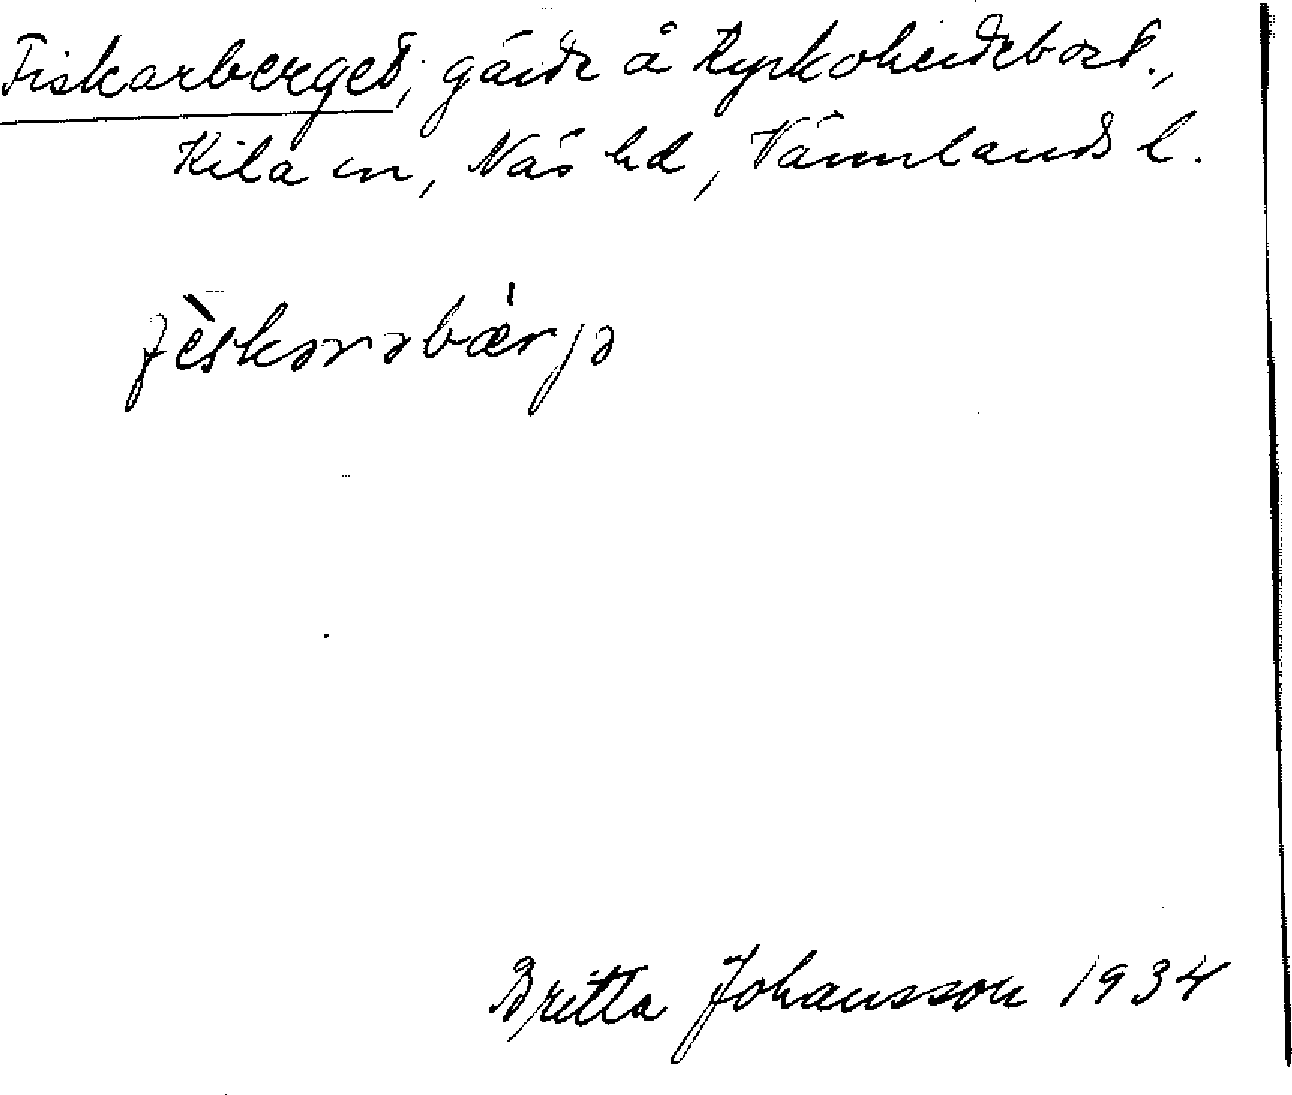 Fiskarberget, gård å Kyrkoherdebost.,
Kila sn, Näs hd, Värmlands l.
fèskarəbǽrjə
Britta Johansson 1934